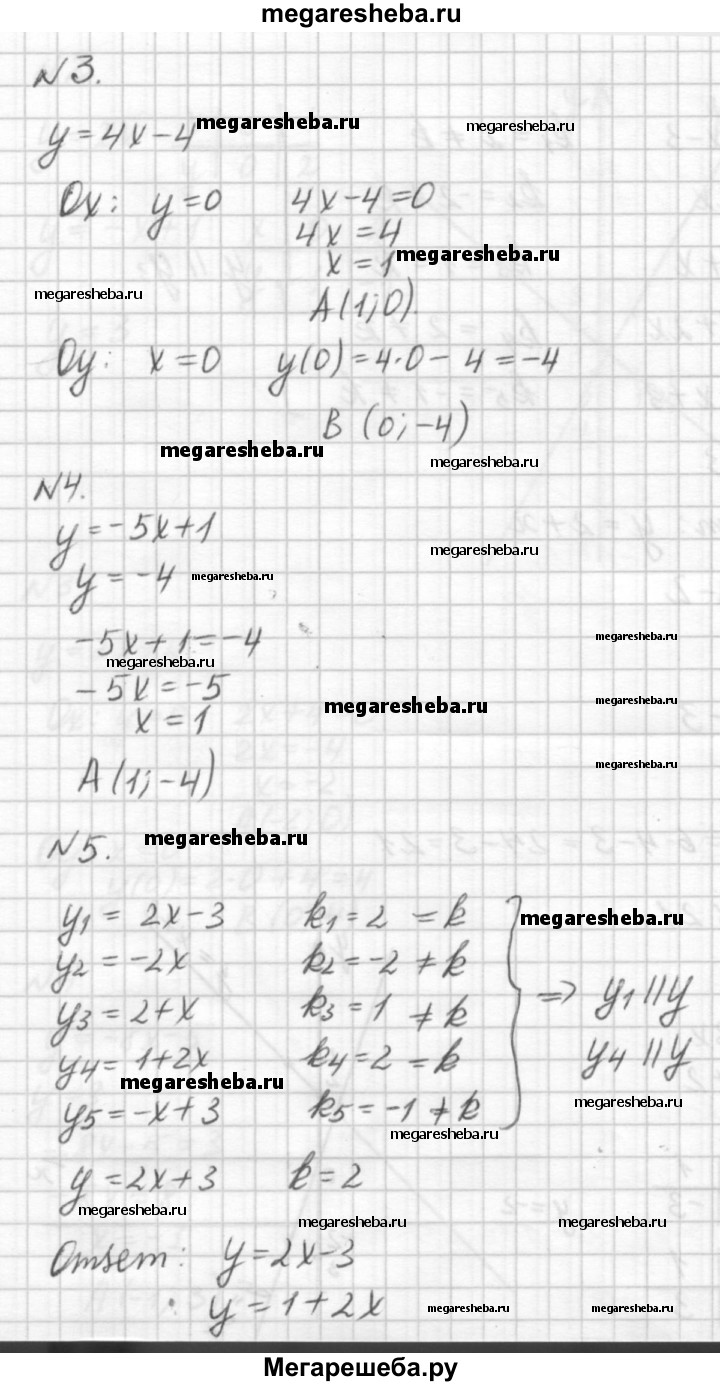 megaresheba.ru
N3.
y=4x-4 megaresheba.ru megaresheba.ru
Ox: y=0 4x-4=0
4x=4
x=1 megaresheba.ru
megaresheba.ru A(1;0).
Oy: x=0 y(0)=4·0-4=-4
B (0;-4)
megaresheba.ru megaresheba.ru
N4.
y=-5x+1
megaresheba.ru
y=-4 megaresheba.ru
-5x+1=-4 megaresheba.ru
megaresheba.ru
-5x=-5 megaresheba.ru
x=1 megaresheba.ru
A(1;-4) megaresheba.ru
N5. megaresheba.ru
y1 = 2x-3 k1=2 =k megaresheba.ru
y2=-2x k2=-2 ≠k
y3=2+x k3=1 ≠k ⇒ y1||y
y4=1+2x k4=2 =k y4||y
megaresheba.ru megaresheba.ru
y5=-x+3 k5=-1 ≠k
megaresheba.ru
y=2x+3 k=2
megaresheba.ru megaresheba.ru megaresheba.ru
Ответ: y=2x-3
y=1+2x megaresheba.ru megaresheba.ru
Мегарешеба.ру